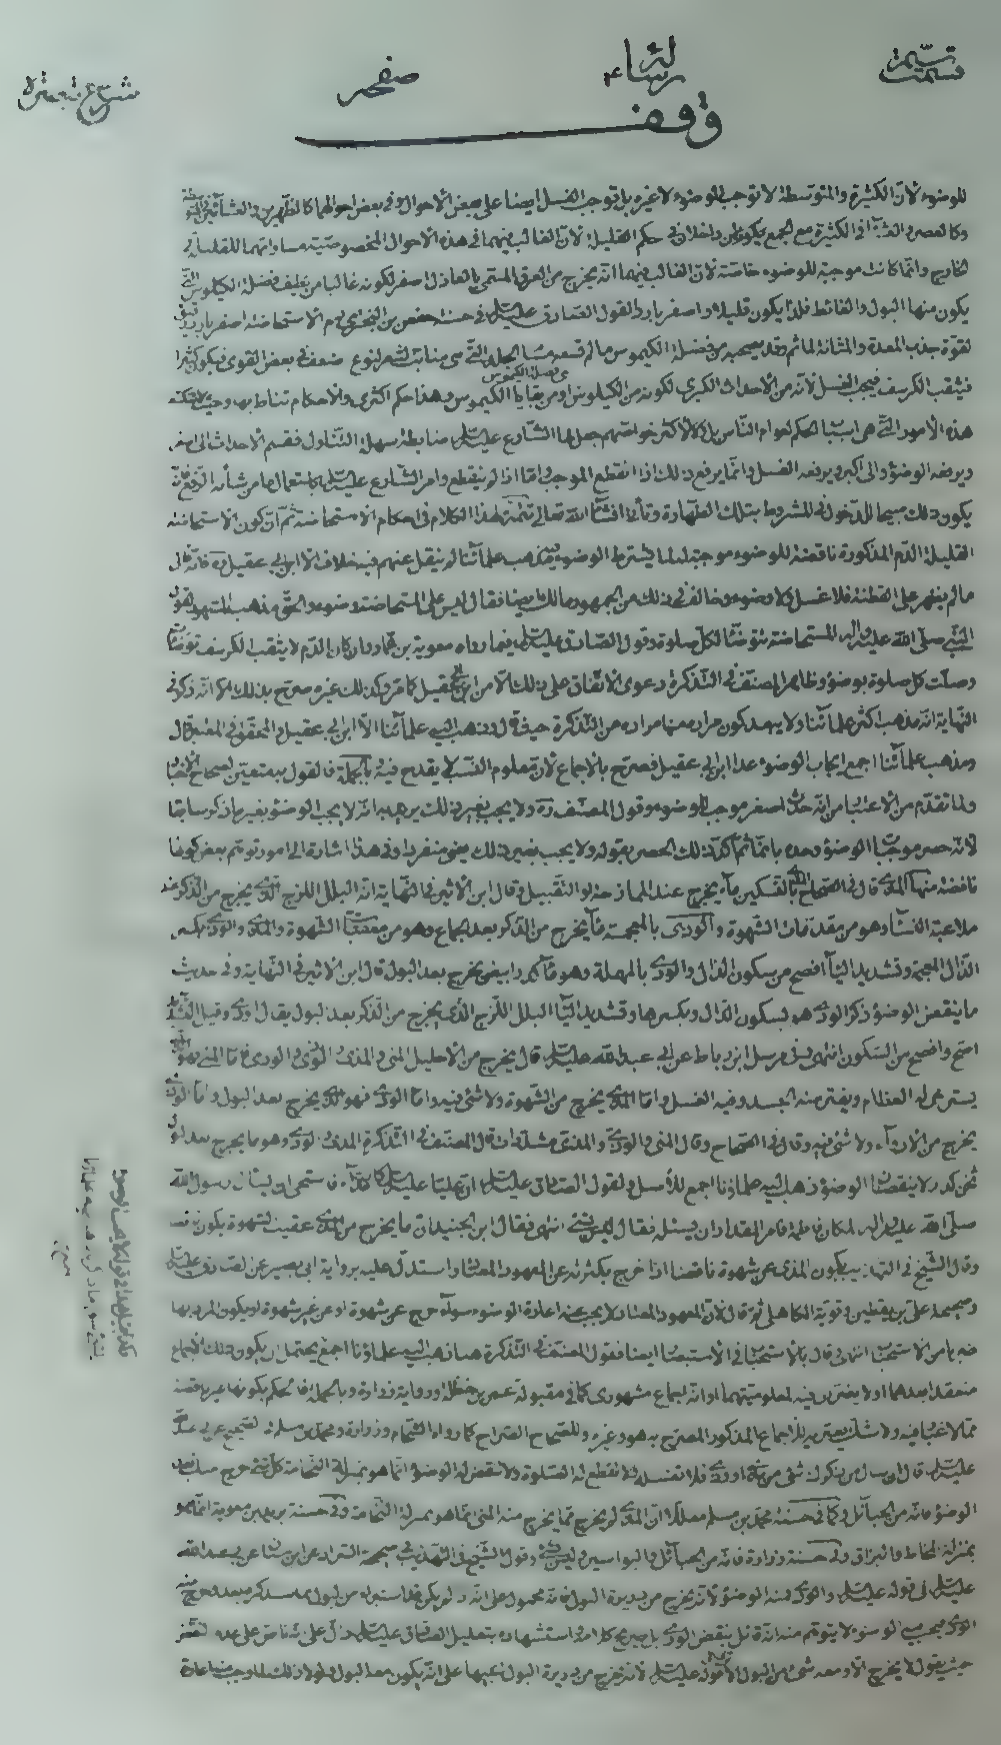 رسالة
صفحه
وقف
للوضوء لان الكثيرة والمتوسطة لا توجب الوضوء لا غيره بل توجب الغسل ايضا على بعض الاحوال وفى بعض احوالهما كالظهرين فى
وكالعصر والعشاء فى الكثيرة مع الجمع يكونان داخلان فى حكم القليلة لان الغالب فيهما فى هذه الاحوال المخصوصة مساواتهما للقليلة فى
الخارج وانما كانت موجبة للوضوء خاصة لان الغالب فيهما انه يخرج من العرق المسمى بالعاذل اصفر لكونه غالبا من لطيف فضلة الكيلوس التى
يكون منها البول والغائط فلذا يكون قليلا واصفر باردا لقول الصادق عليه السلام فى حسنة حفص بن البخترى دم الاستحاضة اصفر بارد
لقوة جذب المعدة والمثانة للمائع وقد يصحبه من فضلة الكيموس ما لم تسعه مسام الجلد التى هى منابت الشعر لنوع ضعف فى بعض القوى فيكون كثيرا
فيثقب الكرسف فيجب الغسل لانه من الاحداث الكبرى لكونه من الكيلوس او من بقايا الكيموس وهذا حكم اكثرى والاحكام تناط بها وحيث
هذه الامور التى هى اسباب الحكم لعوام الناس بل لاكثر خواصهم جعل لها الشارع عليه السلام ضابطة سهلة التناول فقسم الاحداث الى اصغر
ويرفعه الوضوء والى اكبر ويرفعه الغسل وانما يرفع ذلك اذا انقطع الموجب واما اذا لم ينقطع وامر الشارع عليه السلام باستعمال ما من شأنه الرفع
يكون ذلك مبيحا للدخول فى المشروط بتلك الطهارة ويأتى انشاء الله تعالى تتمة لهذا الكلام فى احكام الاستحاضة ثم ان كون الاستحاضة
القليلة الدم المذكورة ناقضة للوضوء موجبة له لما يشترط الوضوء فيه مذهب علمائنا لم ينقل عنهم فيه خلاف الا ابن ابى عقيل ره فانه قال
ما لم يظهر على القطنة فلا غسل ولا وضوء وخالف فى ذلك من الجمهور مالك ايضا فقال ليس على المستحاضة وضوء والحق مذهب المشهور لقول
النبى صلى الله عليه واله المستحاضة تتوضأ لكل صلوة وقول الصادق عليه السلام فيما رواه معوية بن عمار وان كان الدم لا يثقب الكرسف توضأت
وصلت كل صلوة بوضوء وظاهر المصنف فى التذكرة دعوى الاتفاق على ذلك الا من ابن ابى عقيل كما مر وكذلك غيره صرح بذلك الا انه ذكر فى
النهاية انه مذهب اكثر علمائنا ولا يبعد كون مراده منها مراده من التذكرة حيث قال ذهب اليه علمائنا الا ابن ابى عقيل والمحقق فى المعتبر قال
ومذهب علمائنا اجمع ايجاب الوضوء عدا ابن ابى عقيل فصرح بالاجماع لان معلوم النسب لا يقدح فيه وبالجملة فالقول به متعين لصحاح الاخبار
ولما تقدم من الاعتبار من انه حدث اصغر موجب للوضوء وقول المصنف ره ولا يجب بغير ذلك يريد به انه لا يجب الوضوء بغير ما ذكر سابقا
لانه حصر موجبات الوضوء وحده بانما ثم اكد ذلك الحصر بقوله ولا يجب بغير ذلك يعنى منفردا وفى هذا اشارة الى امور توهم بعض كونها
ناقضة منها المذى قال فى الصحاح بالتسكين ماء يخرج عند الممازحة او التقبيل وقال ابن الاثير فى النهاية انه البلل اللزج الذى يخرج من الذكر عند
ملاعبة النساء وهو من مقدمات الشهوة والوذى بالمعجمة ماء يخرج من الذكر بعد الجماع وهو من معقبات الشهوة والمذى والوذى بكسر
الذال المعجمة وتشديد الياء افصح من سكون الذال والودى بالمهملة وهو ماء كدر ابيض يخرج بعد البول قال ابن الاثير فى النهاية وفى حديث
ما ينقض الوضوء ذكر الودى هو بسكون الدال وبكسرها وتشديد الياء البلل اللزج الذى يخرج من الذكر بعد البول يقال ودى وقيل التشديد
اصح وافصح من السكون انتهى وفى مرسل ابن رباط عن ابى عبدالله عليه السلام قال يخرج من الاحليل المنى والمذى والوذى والودى فاما المنى فهو الذى
يسترخى له العظام ويفتر منه الجسد وفيه الغسل واما المذى يخرج من الشهوة ولا شئ فيه واما الودى فهو الذى يخرج بعد البول واما الوذى
يخرج من الادواء ولا شئ فيه وقال فى الصحاح وقال المنى والودى والمذى مشددات قال المصنف فى التذكرة المذى والودى وهو ما يخرج بعد البول
ثخين كدر لا ينقضان الوضوء ذهب اليه علماؤنا اجمع للاصل ولقول الصادق عليه السلام ان عليا عليه السلام كان مذاء فاستحى ان يسئل رسول الله
صلى الله عليه واله لمكان فاطمة فامر المقداد ان يسئله فقال ليس بشئ انتهى فقال ابن الجنيد ان ما يخرج من المذى عقيب الشهوة يكون ناقضا
وقال الشيخ فى التهذيب يكون المذى عن شهوة ناقضا اذا خرج بكثرته عن المعهود المعتاد واستدل عليه برواية ابى بصير عن الصادق عليه السلام
وصحيحة على بن يقطين وقوية الكاهلى ثم قال لان المعهود المعتاد لا يجب منه اعادة الوضوء سواء خرج عن شهوة او عن غير شهوة او يكون المراد بها
ضربا من الاستحباب انتهى وقال بالاستحباب فى الاستبصار ايضا فقول المصنف فى التذكرة هنا ذهب اليه علماؤنا اجمع يحتمل ان يكون ذلك الاجماع
منعقدا بعدهما او لا يضران فيه لمعلوميتهما او انه اجماع مشهورى كما فى مقبولة عمر بن حنظلة ورواية زرارة وبالجملة فالحكم بكونها غير ناقضة
مما لا غبار فيه ولا شك يعتريه للاجماع المذكور المصرح به هو وغيره وللصحاح الصراح كما رواه الشحام وزرارة ومحمد بن مسلم فى الصحيح عن ابى عبدالله
عليه السلام قال ان سال من ذكرك شئ من مذى او ودى فلا تغسله ولا تقطع له الصلوة ولا تنقض له الوضوء انما هو بمنزلة النخامة كل شئ خرج منك بعد
الوضوء فانه من الحبائل وكما فى حسنة محمد بن مسلم معللا ان المذى لم يخرج مما يخرج منه المنى انما هو بمنزلة النخامة وفى حسنة بريد بن معوية انما هو
بمنزلة المخاط والبزاق وفى حسنة زرارة فانه من الحبائل او البواسير وليس بشئ وقول الشيخ فى التهذيب فى صحيحة
عليه السلام فى قوله عليه السلام والودى فمنه الوضوء لانه يخرج من دريرة البول فانه محمول على انه
الودى فيجب الوضوء لا يتوهم منه انه قائل بنقض الودى
حيث يقول لا يخرج الا ومعه شئ من البول لقوله عليه السلام لانه يخرج من دريرة البول تنبيها على انه يكون معه البول ولولا ذلك لما وجب منه اعادة